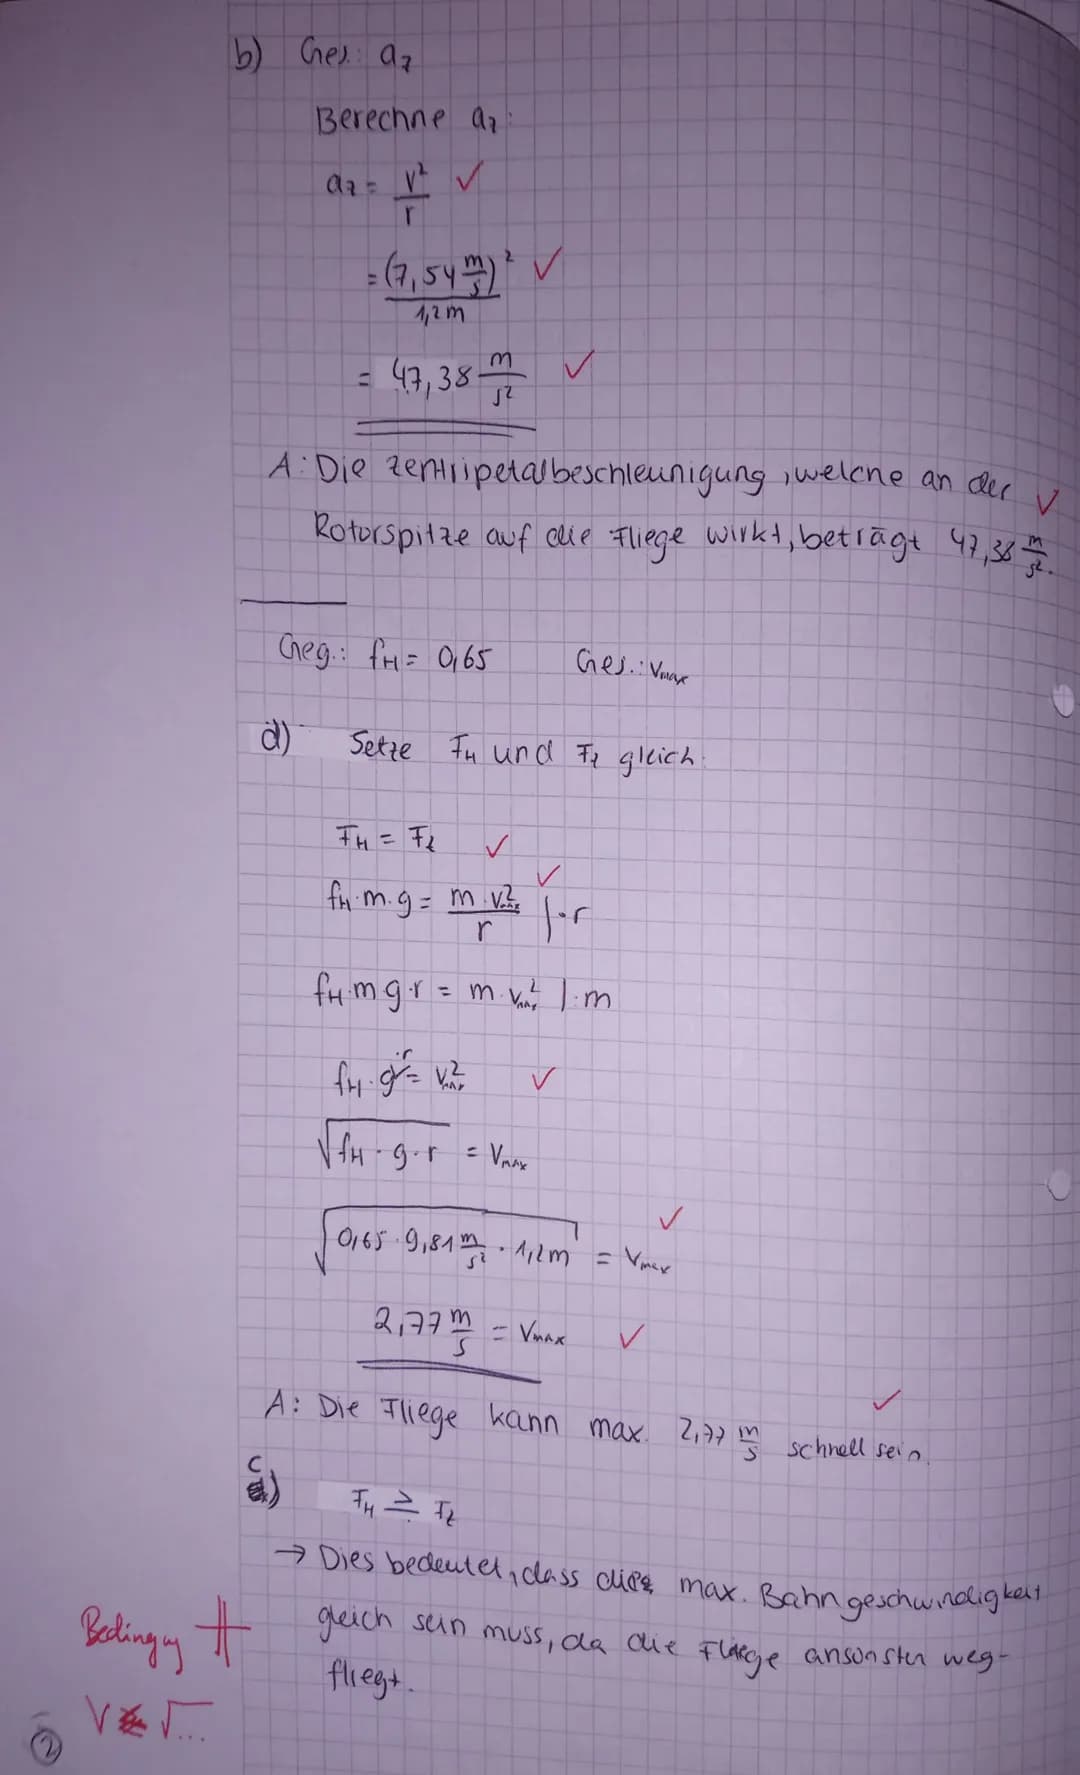 b) Ges.: az
Berechne az:
az = v²/r ✓
= (7,54 m/s)²/1,2m ✓
= 47,38 m/s² ✓
A: Die Zentripetalbeschleunigung, welche an der ✓
Rotorspitze auf die Fliege wirkt, beträgt 47,38 m/s².
Geg.: fH = 0,65 Ges.: vmax
d) Setze FH und Fz gleich:
FH = Fz ✓
fH · m · g = m · vmax²/r | · r ✓
fH · m · g · r = m · vmax² | : m
fH · g · r = vmax² ✓
√fH · g · r = vmax
√0,65 · 9,81 m/s² · 1,2m = vmax ✓
2,77 m/s = vmax ✓
A: Die Fliege kann max. 2,77 m/s schnell sein. ✓
c) FH ≥ Fz
→ Dies bedeutet, dass die max. Bahngeschwindigkeit
gleich sein muss, da die Fliege ansonsten weg-
fliegt.
Bedingung
V √...
2